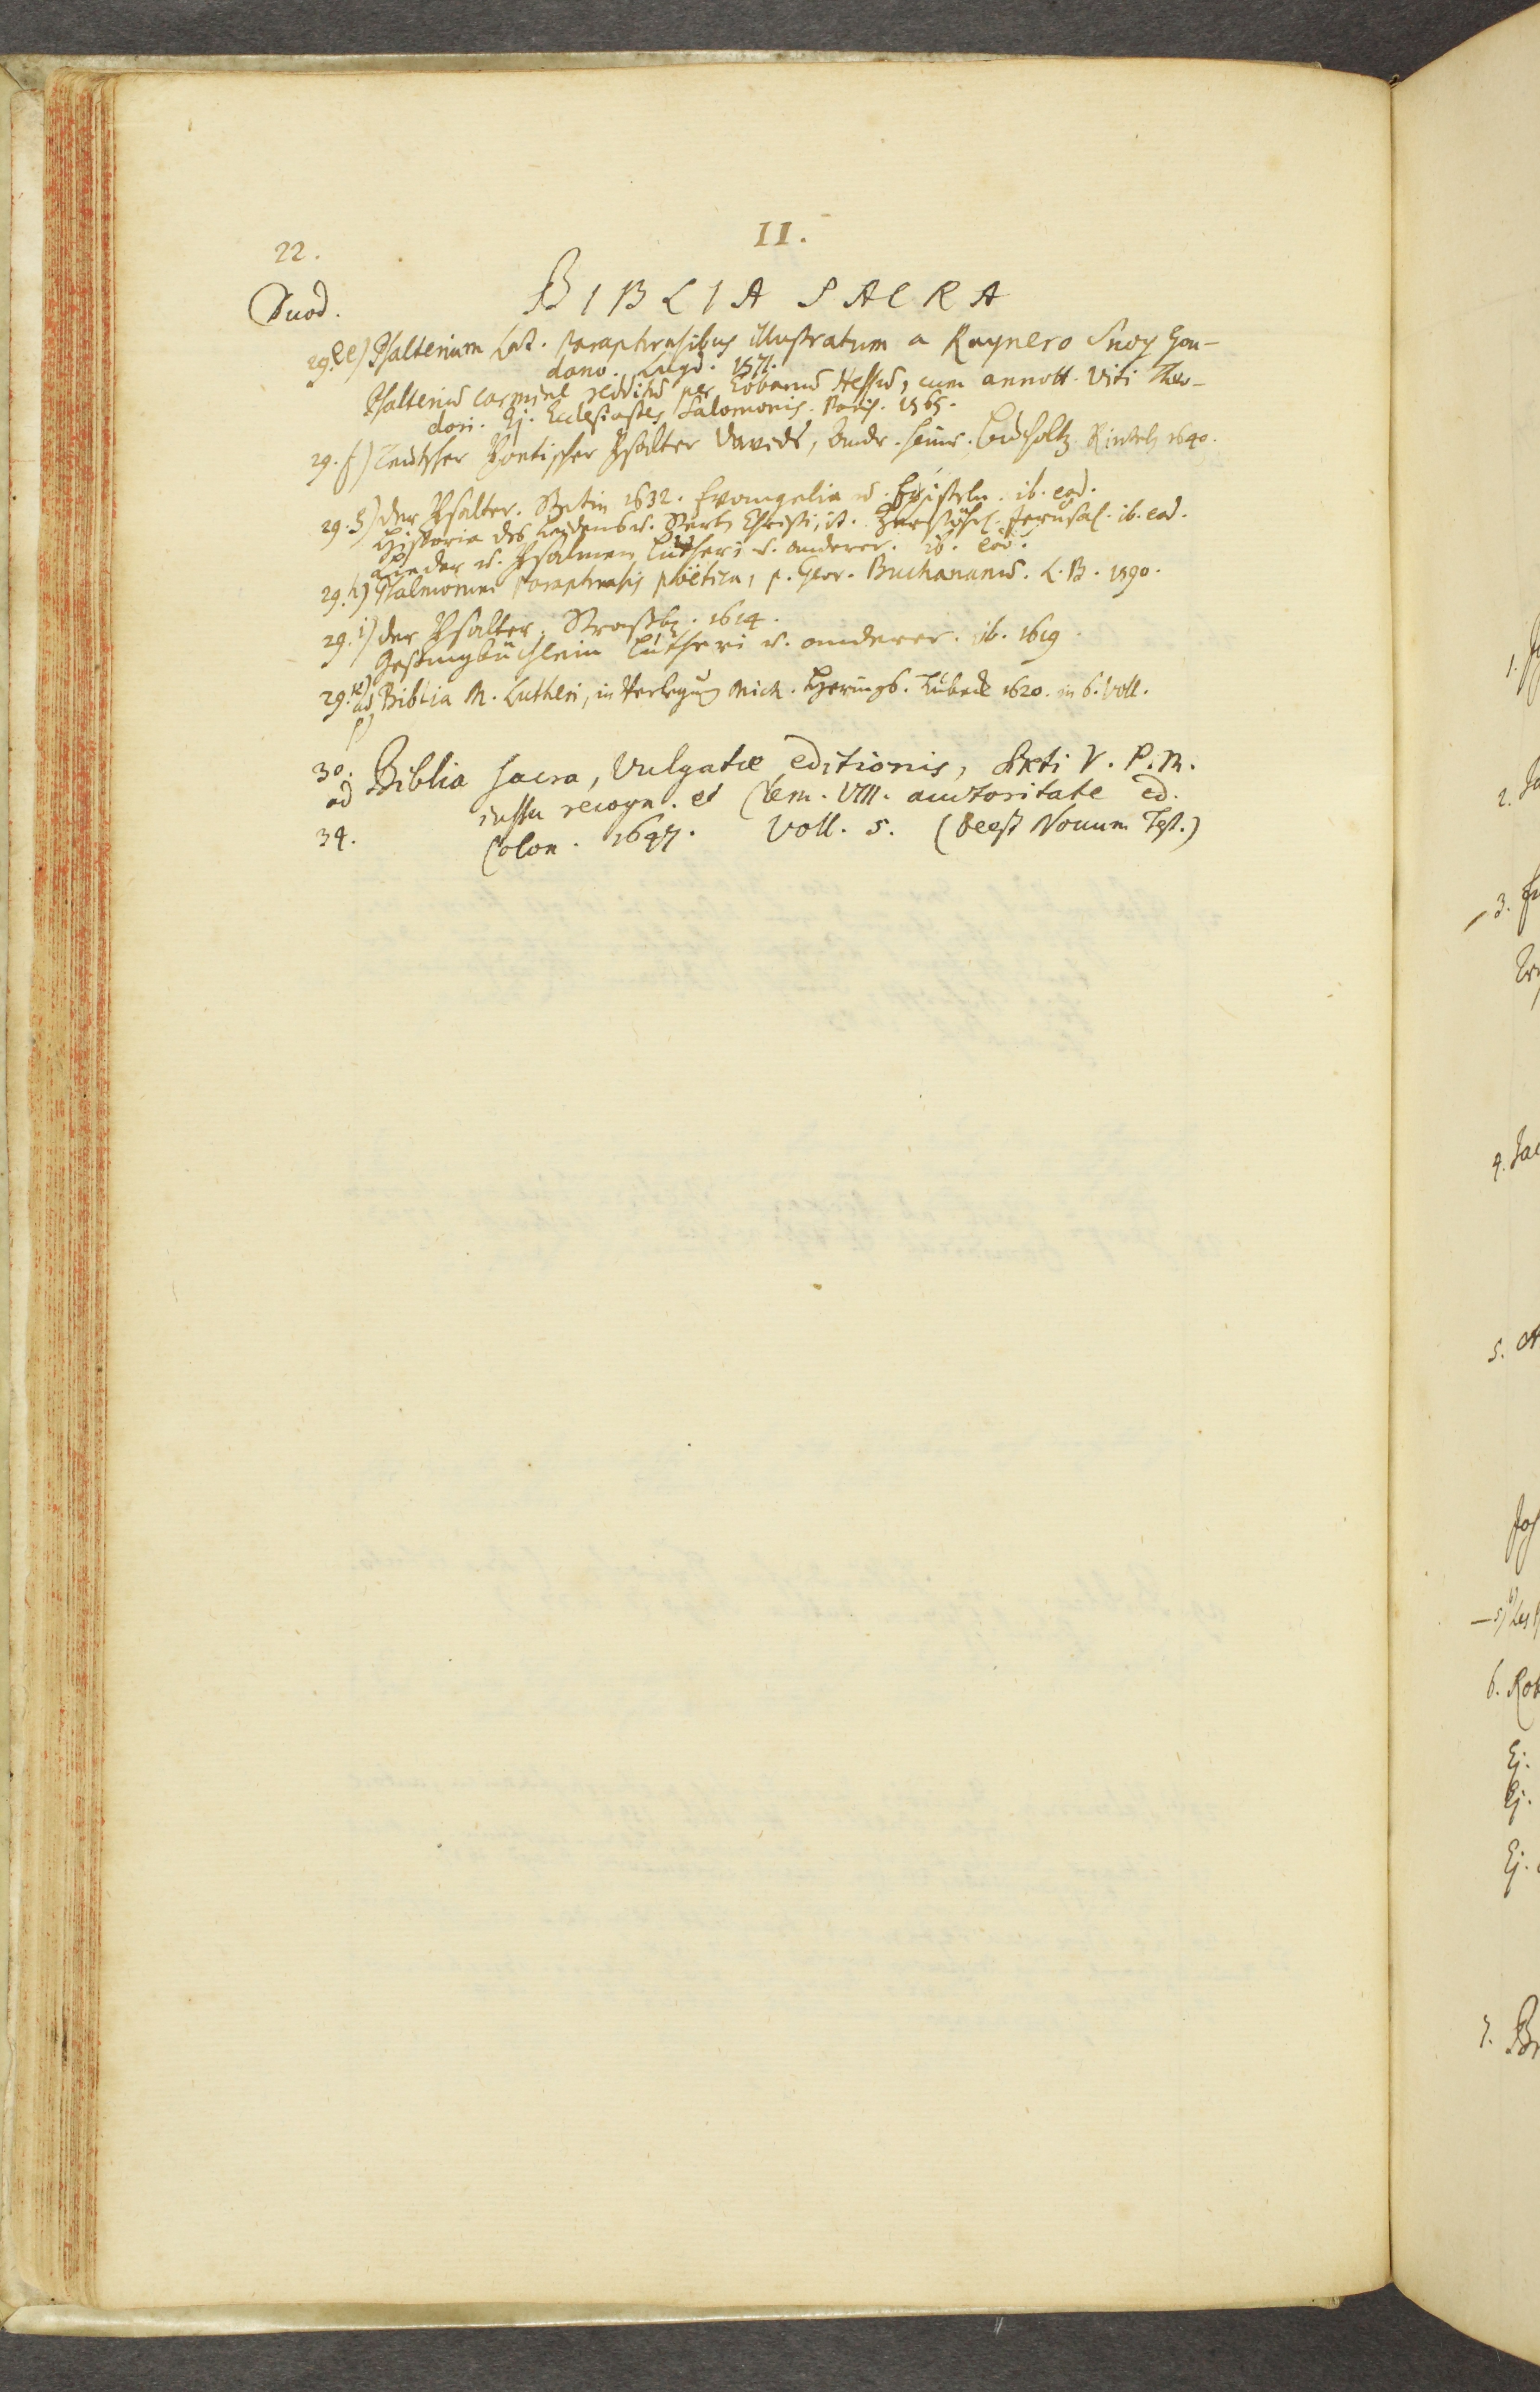 II.
22.
Duod.
BIBLIA SACRA
29. ee) Psalterium Lat. paraphrasibus illustratum a Raynero Snoy Gou-
dano. Lugd. 1571.
Psalteriū carmine redditū per Eobanū Hessū, cum annott. Viti Theo-
dori. Ej. Ecclesiastes Salomonis. Paris. 1565.
29. f) Teutscher Poetischer Psalter Davids, Andr. Heinr. Bucholtz Rinteln 1640.
29. g) der Psalter. Stetin 1632. Evangelia u. Episteln. ib. eod.
Historia des Leidens u. Sterb. Christi, it. Zerstöhr. Jerusal. ib. eod.
Lieder u. Psalmen Lutheri u. anderer. ib. eod.
29. h) Psalmorum paraphrasis poëtica, p. Geor. Buchananū. L. B. 1590.
29. i) der Psalter. Straßbg. 1614.
Gesangbüchlein Lutheri u. anderer. ib. 1619
29. k)
ad Biblia M. Lutheri, in Verlegung Mich. Herings. Lübeck 1620. in 6. Voll.
p)
30. Biblia sacra, Vulgatæ editionis, Sixti V. P. M.
ad iussu recogn. et Clem. VIII. auctoritate ed.
34. Colon. 1647. Voll. 5. (deest Novum Test.)
1.
2.
3.
4. Jac
5.
Jos
5)
6. Rob
Ej.
Ej.
Ej.
7. Br